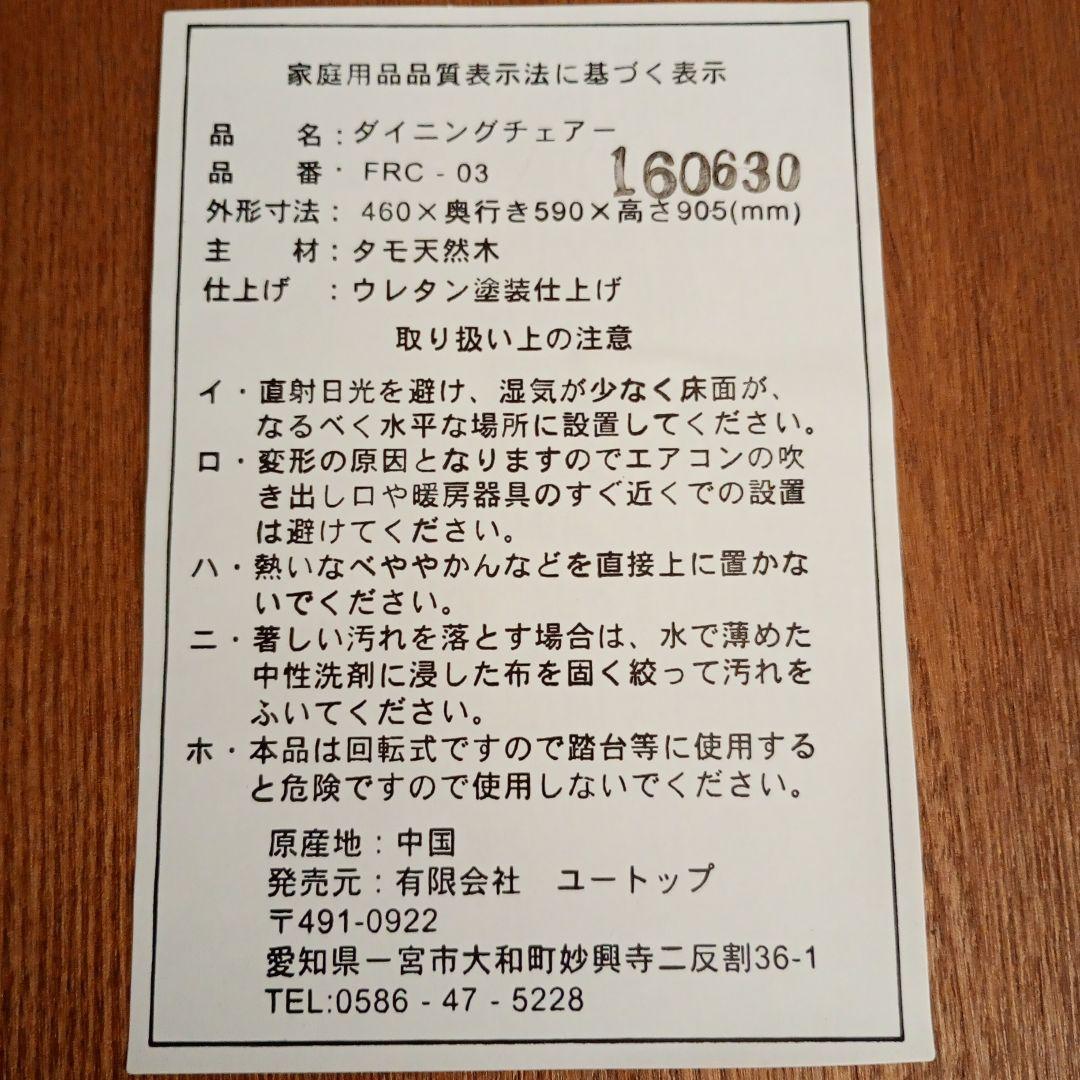 家庭用品品質表示法に基づく表示
品　　名：ダイニングチェアー
品　　番・ FRC - 03
160630
外形寸法： 460×奥行き590×高さ905(mm)
主　　材：タモ天然木
仕上げ　：ウレタン塗装仕上げ
取り扱い上の注意
イ・直射日光を避け、湿気が少なく床面が、
なるべく水平な場所に設置してください。
ロ・変形の原因となりますのでエアコンの吹
き出し口や暖房器具のすぐ近くでの設置
は避けてください。
ハ・熱いなべややかんなどを直接上に置かな
いでください。
ニ・著しい汚れを落とす場合は、水で薄めた
中性洗剤に浸した布を固く絞って汚れを
ふいてください。
ホ・本品は回転式ですので踏台等に使用する
と危険ですので使用しないでください。
原産地：中国
発売元：有限会社　ユートップ
〒491-0922
愛知県一宮市大和町妙興寺二反割36-1
TEL:0586 - 47 - 5228